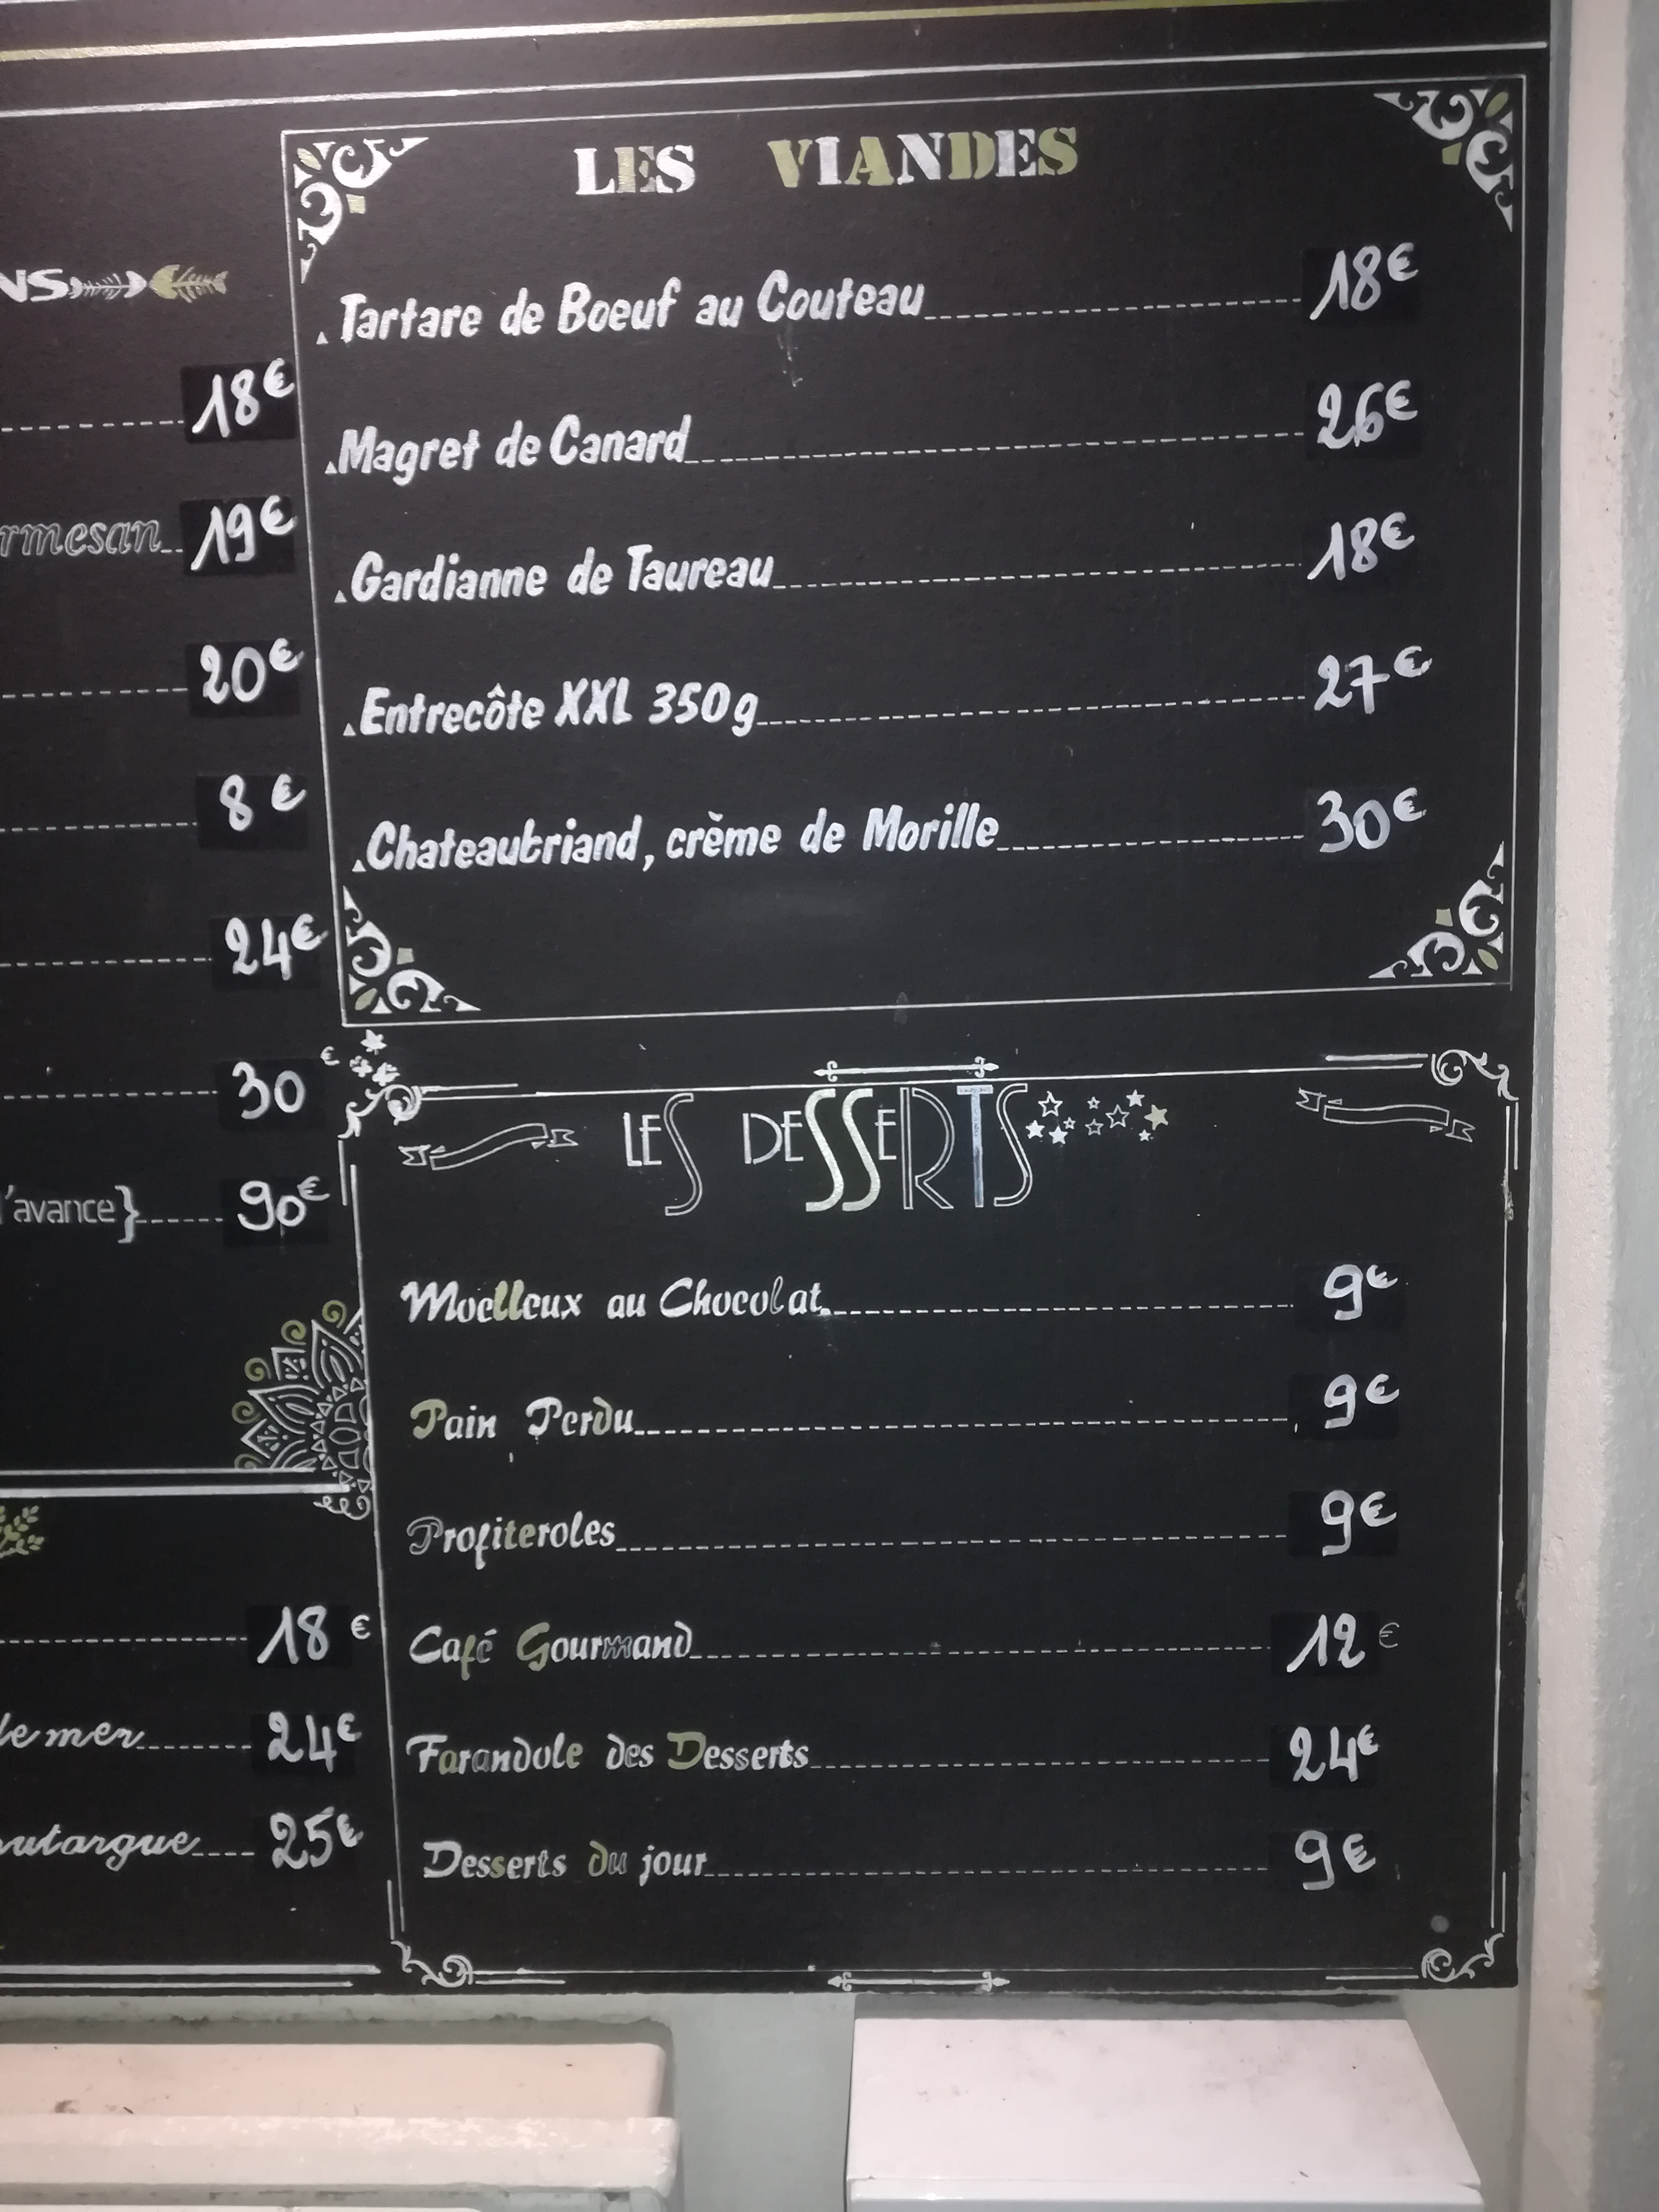 NS
18€
rmesan 19€
20€
8€
24€
30€
l'avance} 90€
18€
de mer 24€
outargue 25€
LES VIANDES
Tartare de Boeuf au Couteau 18€
Magret de Canard 26€
Gardianne de Taureau 18€
Entrecôte XXL 350g 27€
Chateaubriand, crème de Morille 30€
LES DESSERTS
Moelleux au Chocolat 9€
Pain Perdu 9€
Profiteroles 9€
Café Gourmand 12€
Farandole des Desserts 24€
Desserts du jour 9€